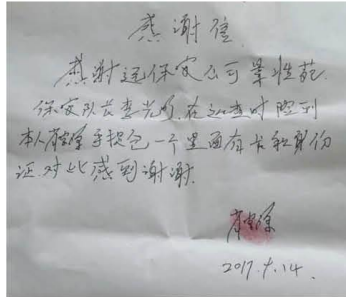 感谢信
感谢远保安公司
保安队长在巡查时捡到
本人手提包一个里面有卡和身份
证.对此感到谢谢.
2017.9.14